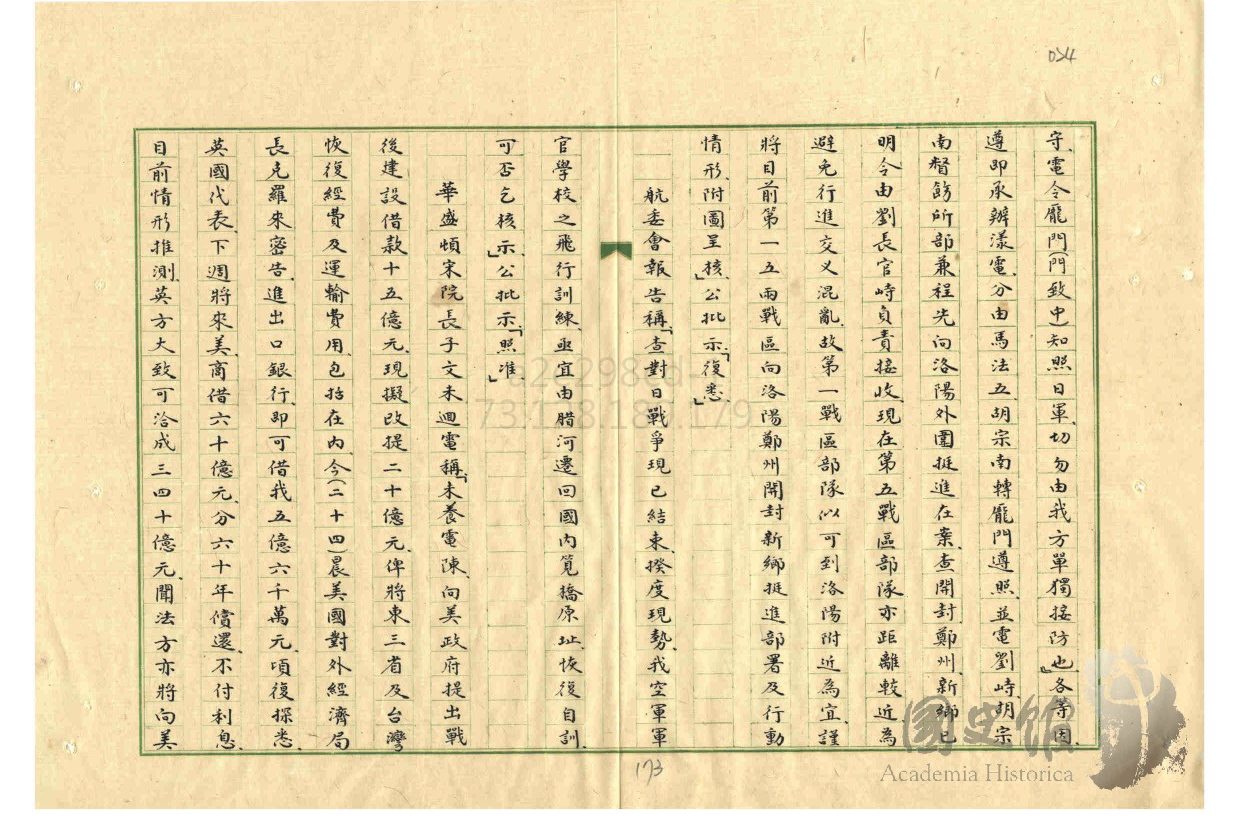 034
守、電令龐門(門致中)知照日軍、切勿由我方單獨接防也」各等因、
遵即承辦漾電、分由馬法五、胡宗南轉龐門遵照、並電劉峙、胡宗
南督飭所部兼程先向洛陽外圍挺進在案、查開封、鄭州、新鄉已
明令由劉長官峙負責接收、現在第五戰區部隊亦距離較近、為
避免行進交叉混亂、故第一戰區部隊似可到洛陽附近為宜、謹
將目前第一、五兩戰區向洛陽、鄭州、開封、新鄉挺進部署及行動
情形、附圖呈核」公批示「復悉」
航委會報告稱「查對日戰爭現已結束、揆度現勢、我空軍軍
官學校之飛行訓練、亟宜由腊河遷回國內筧橋原址、恢復自訓、
可否乞核示」公批示「照准」
華盛頓宋院長子文未迴電稱「未養電陳、向美政府提出戰
後建設借款十五億元、現擬改提二十億元、俾將東三省及台灣
恢復經費及運輸費用、包括在內、今(二十四)晨美國對外經濟局
長克羅來密告、進出口銀行、即可借我五億六千萬元、頃復探悉、
英國代表下週將來美、商借六十億元、分六十年償還、不付利息、
目前情形推測、英方大致可洽成三四十億元、聞法方亦將向美
173
國史館
Academia Historica